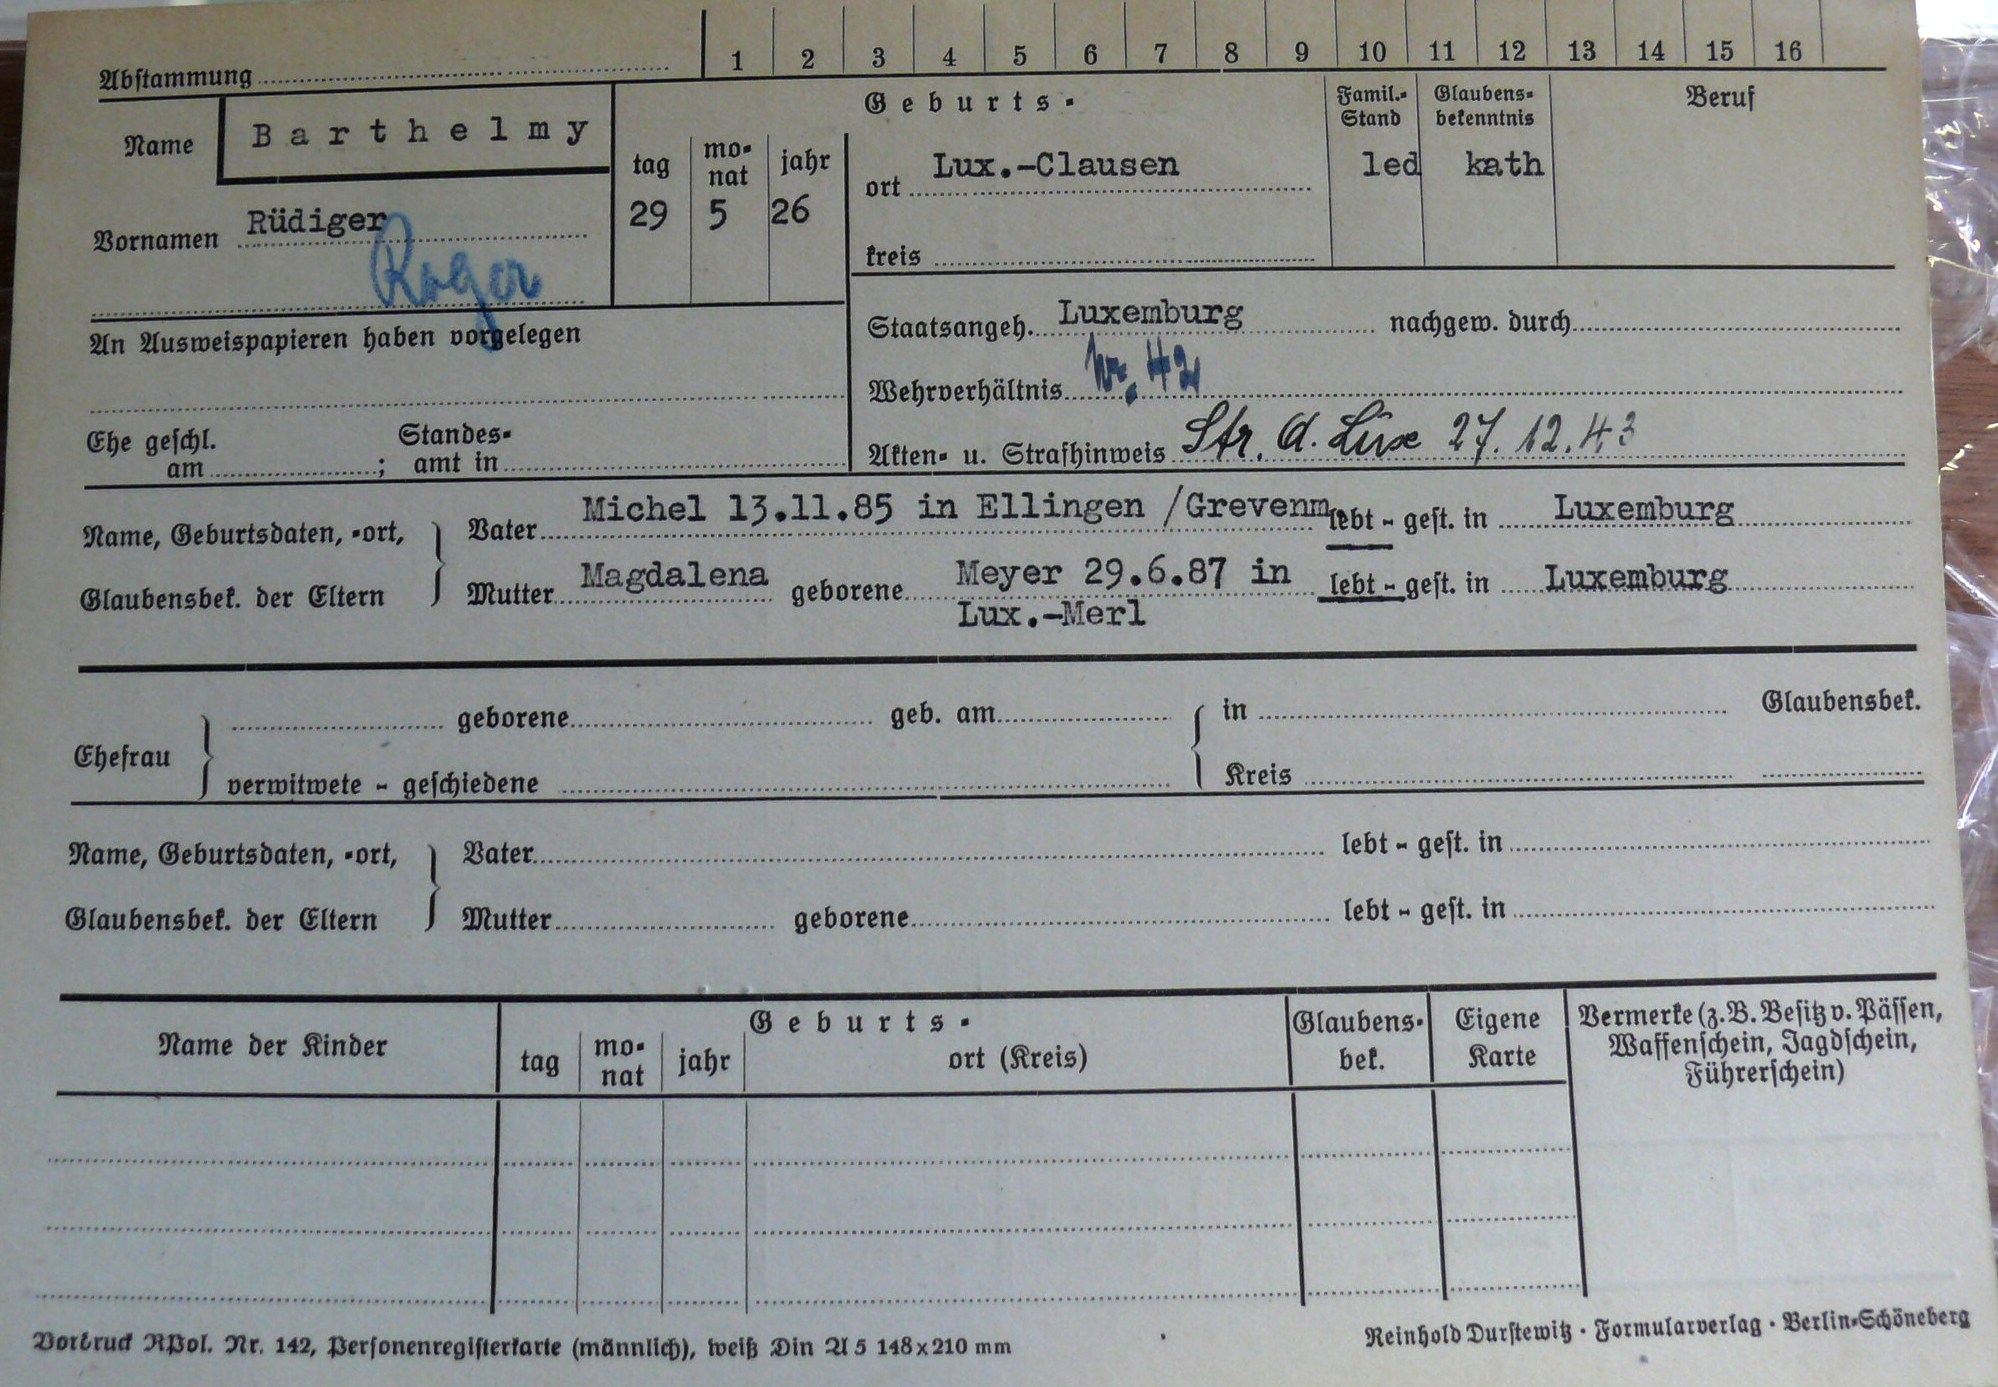 Abstammung 1 2 3 4 5 6 7 8 9 10 11 12 13 14 15 16
Name Barthelmy
Vornamen Rüdiger
Roger
Geburts-
tag monat jahr
29 5 26
ort Lux.-Clausen
kreis
Famil.-Stand
led
Glaubensbekenntnis
kath
Beruf
An Ausweispapieren haben vorgelegen
Staatsangeh. Luxemburg nachgew. durch
Wehrverhältnis Nr. 42
Ehe geschl. am ; Standesamt in
Akten- u. Strafhinweis Str. A. Lux 27.12.43
Name, Geburtsdaten, -ort,
Glaubensbek. der Eltern
Vater Michel 13.11.85 in Ellingen /Grevenm. lebt - gest. in Luxemburg
Mutter Magdalena geborene Meyer 29.6.87 in lebt - gest. in Luxemburg
Lux.-Merl
Ehefrau
geborene geb. am in Glaubensbek.
verwitwete - geschiedene Kreis
Name, Geburtsdaten, -ort,
Glaubensbek. der Eltern
Vater lebt - gest. in
Mutter geborene lebt - gest. in
Name der Kinder
Geburts-
tag monat jahr ort (Kreis)
Glaubensbek.
Eigene Karte
Vermerke (z.B. Besitz v. Pässen,
Waffenschein, Jagdschein,
Führerschein)
Vordruck RPol. Nr. 142, Personenregisterkarte (männlich), weiß Din A5 148x210 mm
Reinhold Durstewitz · Formularverlag · Berlin-Schöneberg